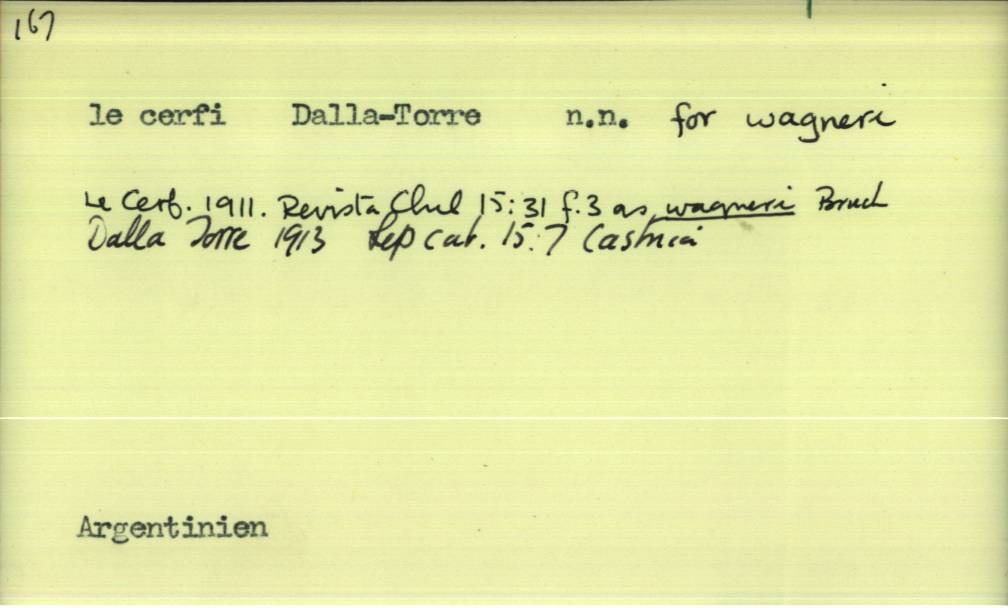 167
le cerfi Dalla-Torre n.n. for wagneri
Le Cerf. 1911. Revista Chil 15:31 f.3 as wagneri Bruch
Dalla Torre 1913 Lep cat. 15:7 Castnia
Argentinien